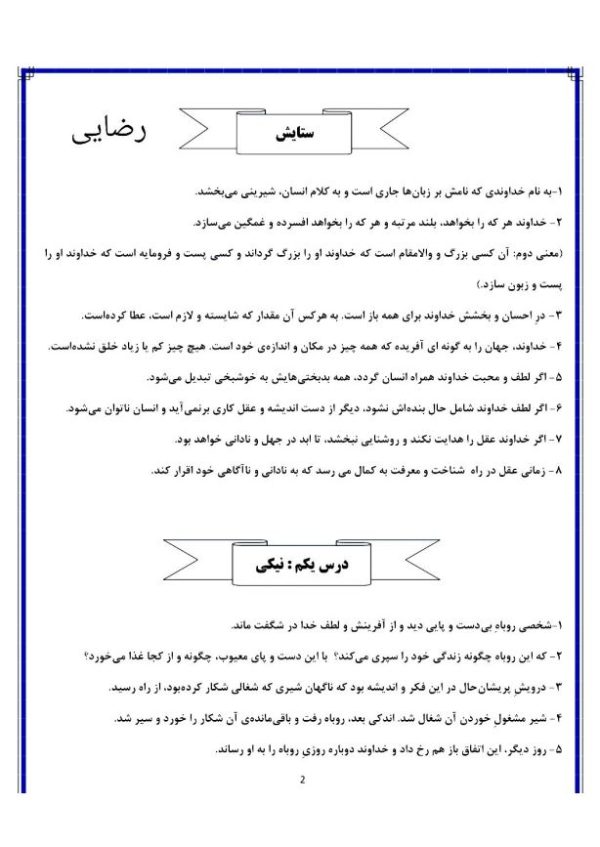 رضایی
ستایش
۱-به نام خداوندی که نامش بر زبان‌ها جاری است و به کلام انسان، شیرینی می‌بخشد.
۲- خداوند هر که را بخواهد، بلند مرتبه و هر که را بخواهد افسرده و غمگین می‌سازد.
(معنی دوم: آن کسی بزرگ و والامقام است که خداوند او را بزرگ گرداند و کسی پست و فرومایه است که خداوند او را
پست و زبون سازد.)
۳- درِ احسان و بخشش خداوند برای همه باز است. به هرکس آن مقدار که شایسته و لازم است، عطا کرده‌است.
۴- خداوند، جهان را به گونه ای آفریده که همه چیز در مکان و اندازه‌ی خود است. هیچ چیز کم یا زیاد خلق نشده‌است.
۵- اگر لطف و محبت خداوند همراه انسان گردد، همه بدبختی‌هایش به خوشبختی تبدیل می‌شود.
۶- اگر لطف خداوند شامل حال بنده‌اش نشود، دیگر از دست اندیشه و عقل کاری برنمی‌آید و انسان ناتوان می‌شود.
۷- اگر خداوند عقل را هدایت نکند و روشنایی نبخشد، تا ابد در جهل و نادانی خواهد بود.
۸- زمانی عقل در راه شناخت و معرفت به کمال می رسد که به نادانی و ناآگاهی خود اقرار کند.
درس یکم : نیکی
۱-شخصی روباهِ بی‌دست و پایی دید و از آفرینش و لطف خدا در شگفت ماند.
۲- که این روباه چگونه زندگی خود را سپری می‌کند؟ با این دست و پای معیوب، چگونه و از کجا غذا می‌خورد؟
۳- درویشِ پریشان‌حال در این فکر و اندیشه بود که ناگهان شیری که شغالی شکار کرده‌بود، از راه رسید.
۴- شیر مشغولِ خوردن آن شغال شد. اندکی بعد، روباه رفت و باقی‌مانده‌ی آن شکار را خورد و سیر شد.
۵- روز دیگر، این اتفاق باز هم رخ داد و خداوند دوباره روزیِ روباه را به او رساند.
2